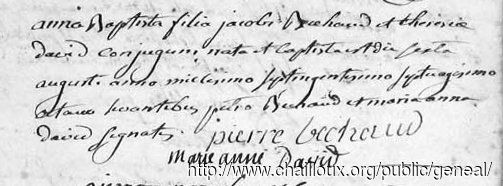 anna Baptista filia jacobi Bechaud et theresiæ
david conjugum, nata et baptista est die sexta
augusti anno millesimo septingentesimo septuagesimo
octavo levantibus petro Bechaud et maria anna
david signatis. pierre bechaud
marie anne David
http://www.chailloux.org/public/geneal/